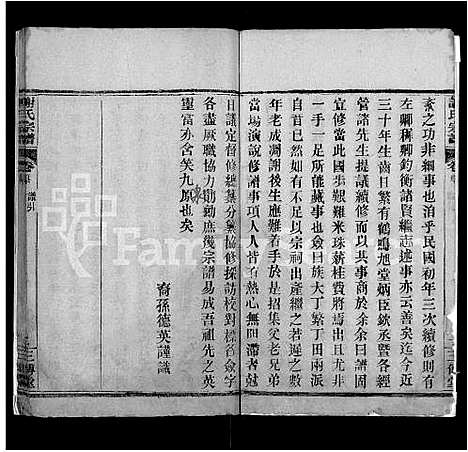 素之功非細事也洎乎民國初年三次續修則有
左卿稱卿鈞衡諸賢繼志述事亦云善矣迄今近
三十年生齒日繁有鶴鳴旭堂炳臣欽丞曁各經
管諸先生提議續修而以其事商於余余曰譜固
宜修當此國步艱難米珠薪桂費將焉出且尤非
一手一足所能蕆事也僉曰族大丁繁丁田兩派
自首已然如有不足以宗祠出產繼之若遲之數
年老成凋謝後生應難着手於是招集父老昆季
當場演說修譜事項人人皆具熱心無間滯者尅
日議定督修總纂分纂協修採訪校對標名僉字
各盡厥職協力則勷庶幾宗譜易成吾祖先之英
靈當亦含笑九原也矣
裔孫德英謹識
謝氏宗譜
卷首
譜引
三